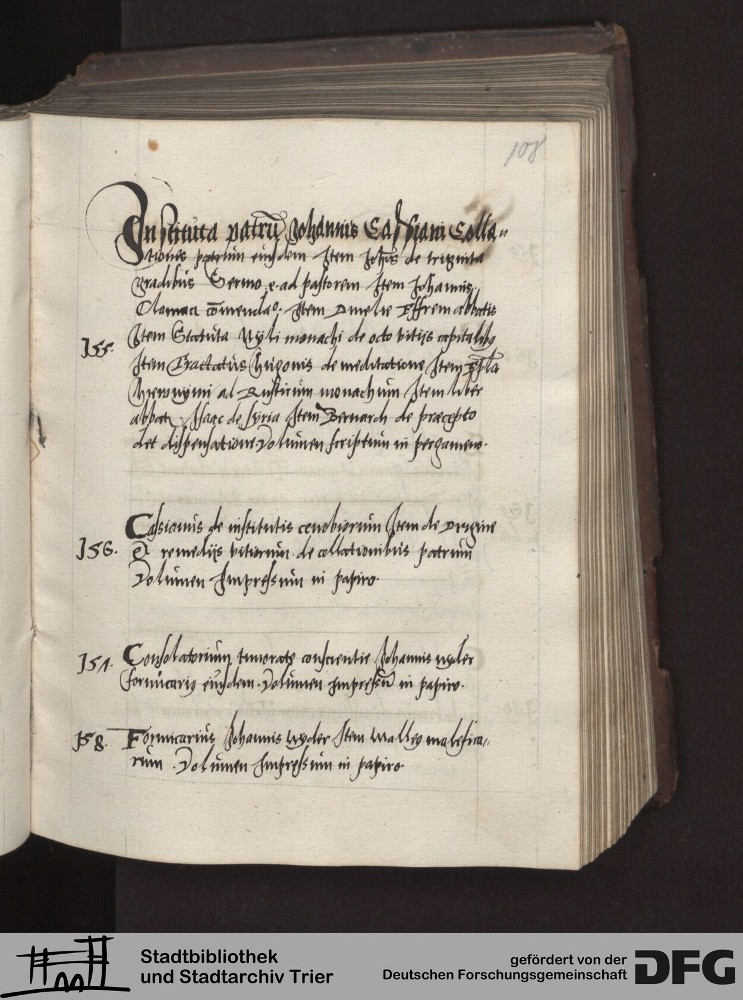 108
Instituta patrū Johannis Cassiani Colla„
tiones patrum eiusdem Item Johis de triginta
gradibus Sermo e. ad pastorem Item Johannis
Climaci cōmendaº. Item Omelie Effrem abbatis
155. Item Statuta Nyli monachi de octo vitijs capitalibꝫ
Item Tractatus Hugonis de meditatione Item Ep̄la
Hieronymi ad Rusticum monachum Item liber
abbatis Isaac de Syria Item Bernardi de præcepto
et dispensatione Volumen scriptum in pergameno.
Cassianus de institutis cenobiorum Item de Origine
156. & remedijs vitiorum de collationibus patrum
Volumen Impressum in papiro.
157. Consolatorium timorate conscientie Johannis nyder
formicarig eiusdem. Volumen Impressū in papiro.
158. Formicarius Johannis Nyder Item Malleg malefica„
rum. Volumen Impressum in papiro
Stadtbibliothek
und Stadtarchiv Trier
gefördert von der
Deutschen Forschungsgemeinschaft
DFG